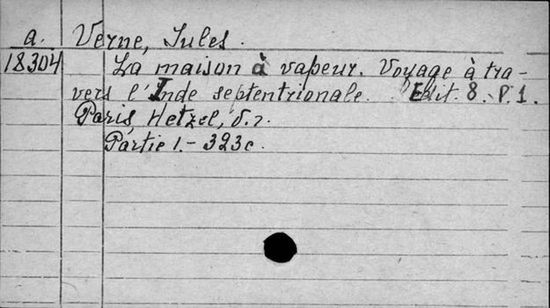 a. Verne, Jules.
18304 La maison à vapeur. Voyage à tra-
vers l'Inde septentrionale. Edit. 8. P. 1.
Paris, Hetzel, б.г.
Partie 1.- 323 с.